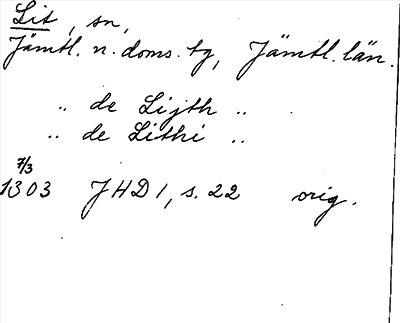 Lit, sn,
Jämtl. n. doms. tg, Jämtl. län.
,, de Lijth ,,
,, de Lithi ,,
7/3
1303 JHD 1, s. 22 orig.